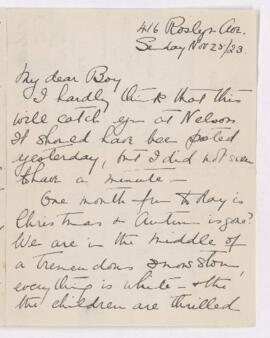 416 Roslyn Ave.
Sunday Nov 25/23.
My dear Boy
I hardly think that this
will catch you at Nelson
It should have been posted
yesterday, but I did not seem
to have a minute –
One month from today is
Christmas &
We are in the middle of
a tremendous snow storm,
everything is white – & the
the children are thrilled